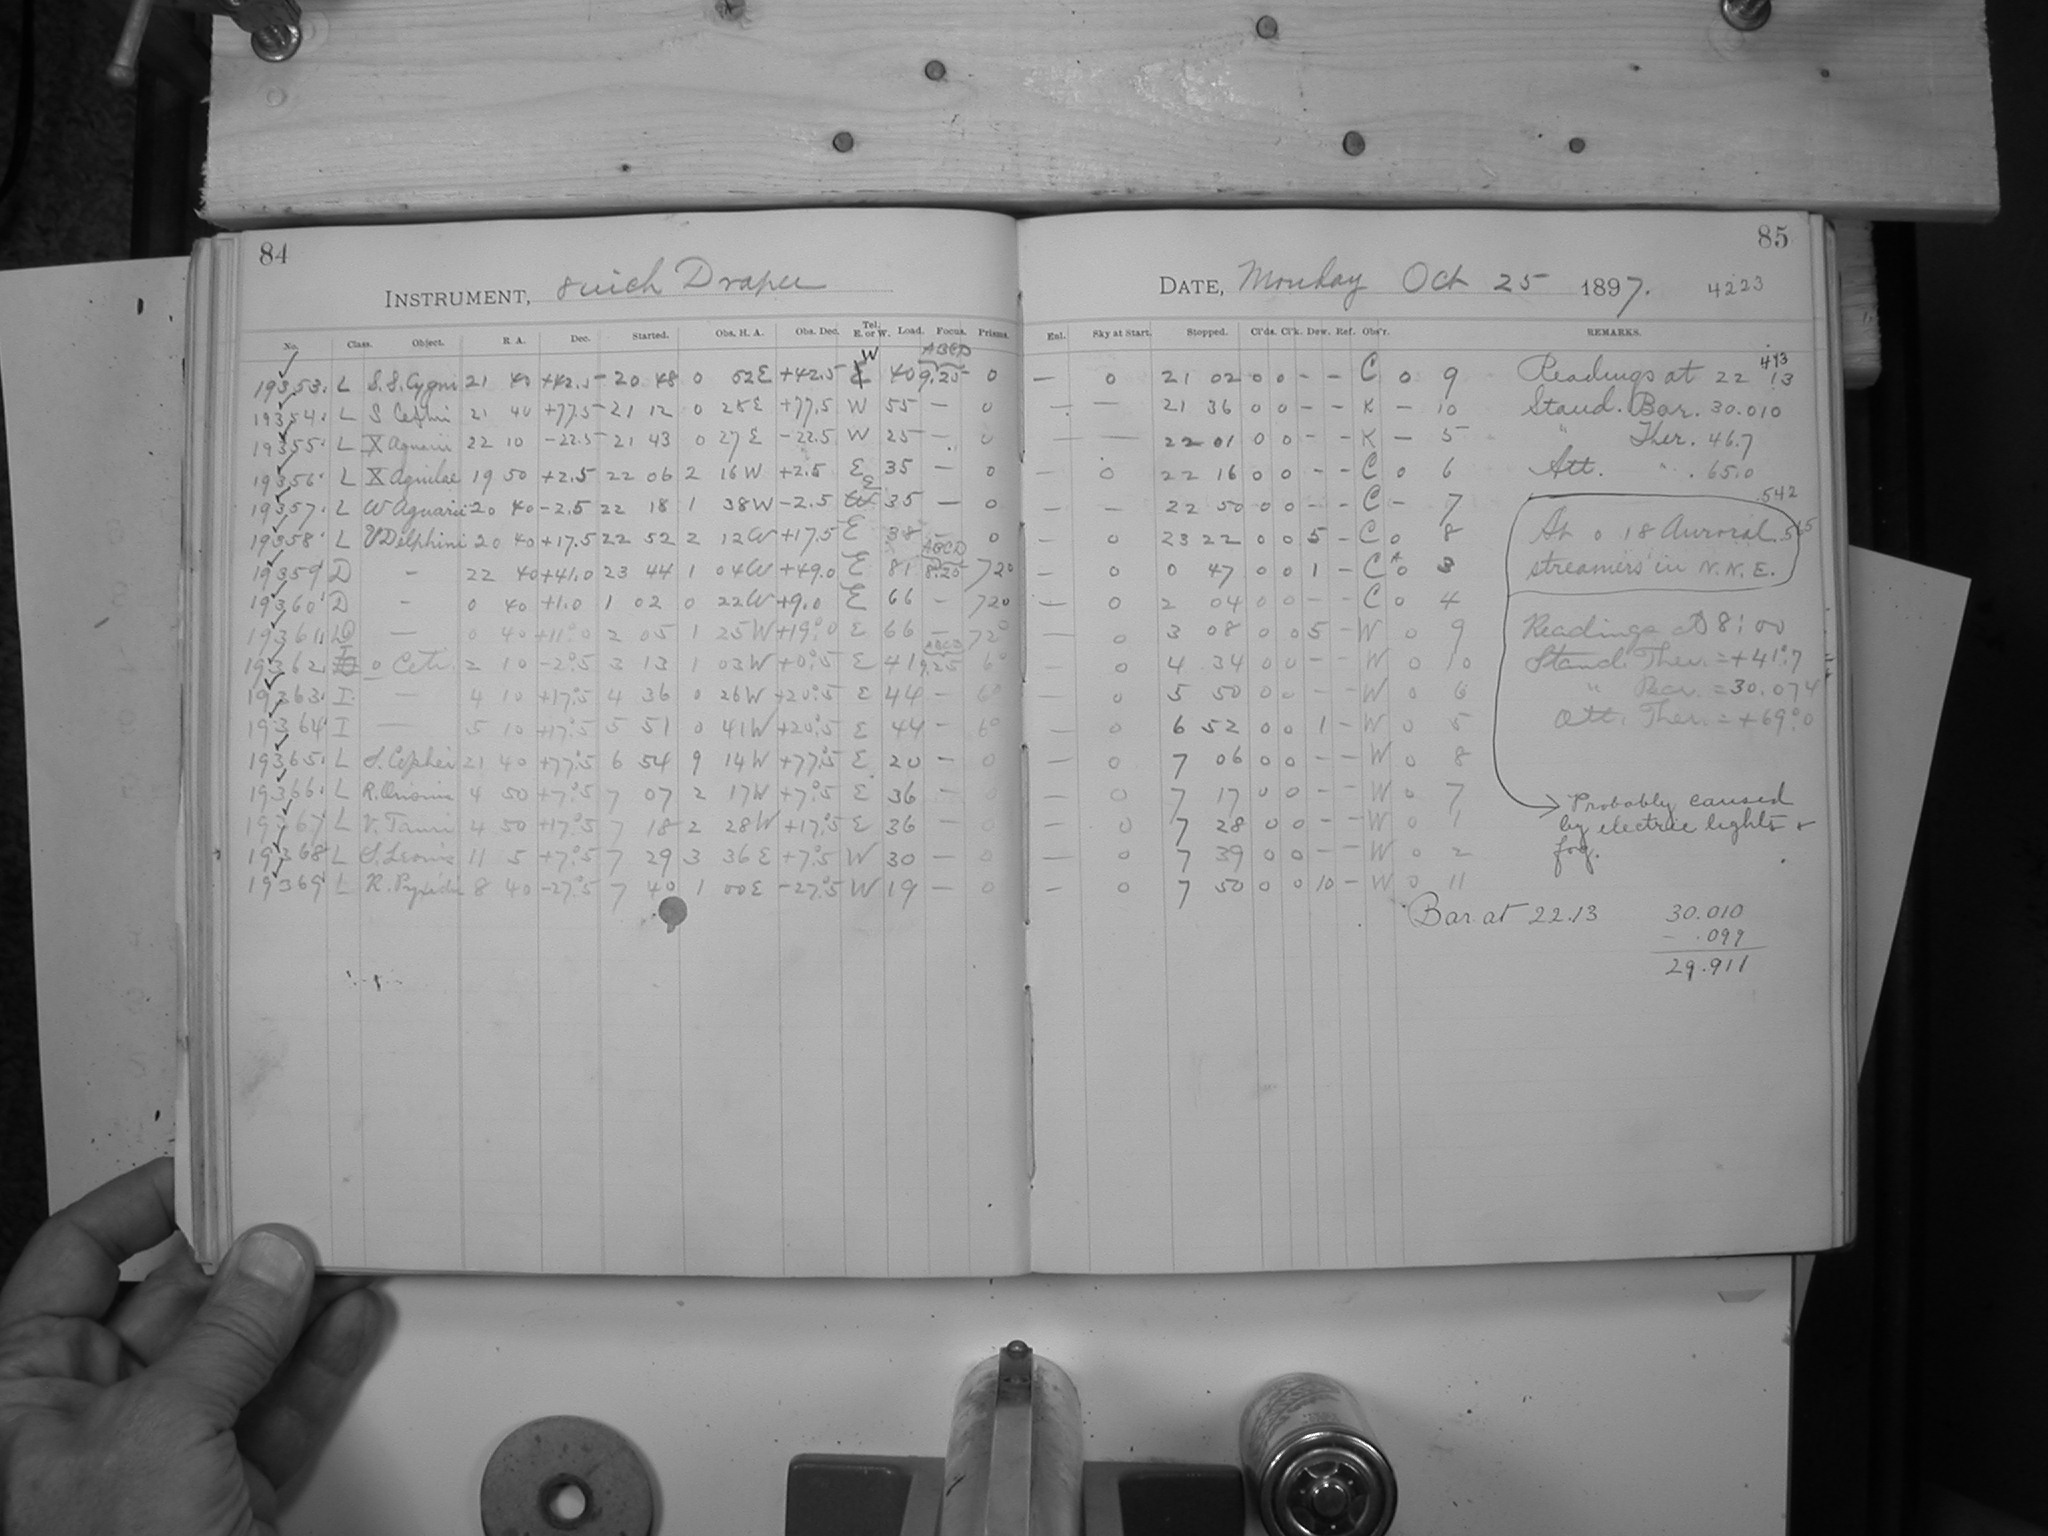 84
INSTRUMENT, 8 inch Draper
No. Class. Object. R. A. Dec. Started. Obs. H. A. Obs. Dec. Tel. E. or W. Load. Focus. Prisms.
W ABCD
19353. L S.S. Cygni 21 40 +42.5 20 48 0 52E +42.5 E 40 9.25 0
19354. L S Cephei 21 40 +77.5 21 12 0 28E +77.5 W 55 — 0
19355. L X Aquarii 22 10 -22.5 21 43 0 27E -22.5 W 25 — 0
19356. L X Aquilae 19 50 +2.5 22 06 2 16W +2.5 E 35 — 0
19357. L W Aquarii 20 40 -2.5 22 18 1 38W -2.5 W E 35 — 0
19358. L V Delphini 20 40 +17.5 22 52 2 12W +17.5 E 38 — 0
ABCD
19359 D — 22 40 +41.0 23 44 1 04W +49.0 E 81 8.20 720
19360 D — 0 40 +1.0 1 02 0 22W +9.0 E 66 — 720
19361 D — 0 40 +11°0 2 05 1 25W +19°0 E 66 — 72°
ABCD
19362. I o Ceti 2 10 -2°.5 3 13 1 03W +0°.5 E 41 9.25 6°
19363. I. — 4 10 +17°.5 4 36 0 26W +20°.5 E 44 — 6°
19364 I — 5 10 +17°.5 5 51 0 41W +20°.5 E 44 — 6°
19365. L S. Cephei 21 40 +77°.5 6 54 9 14W +77°.5 E 20 — 0
19366. L R. Orionis 4 50 +7°.5 7 07 2 17W +7°.5 E 36 — 0
19367 L V. Tauri 4 50 +17°.5 7 18 2 28W +17°.5 E 36 — 0
19368 L S. Leonis 11 5 +7°.5 7 29 3 36E +7°.5 W 30 — 0
19369 L R. Pyxidis 8 40 -27°.5 7 40 1 00E -27°.5 W 19 — 0
85
DATE, Monday Oct 25 1897. 4223
Enl. Sky at Start. Stopped. Cl'ds. Cl'k. Dew. Ref. Obs'r. REMARKS.
— 0 21 02 0 0 — — C 0 9 Readings at 22 13
— — 21 36 0 0 — — K — 10 Stand. Bar. 30.010
— — 22 01 0 0 — — K — 5 " Ther. 46.7
— 0 22 16 0 0 — — C 0 6 Att. " . 65.0
— — 22 50 0 0 — — C — 7 .542
— 0 23 22 0 0 5 — C 0 8 At 0 18 Auroral
— 0 0 47 0 0 1 — C 0 3 streamers in N.N.E.
— 0 2 04 0 0 — — C 0 4
— 0 3 08 0 0 5 — W 0 9 Readings at 8:00
— 0 4 34 0 0 — — W 0 10 Stand. Ther. = +41°.7
— 0 5 50 0 0 — — W 0 6 " Bar. = 30.074
— 0 6 52 0 0 1 — W 0 5 Att. Ther. = +69°.0
— 0 7 06 0 0 — — W 0 8
— 0 7 17 0 0 — — W 0 7 Probably caused
— 0 7 28 0 0 — — W 0 1 by electric lights +
— 0 7 39 0 0 — — W 0 2 fog.
— 0 7 50 0 0 10 — W 0 11
Bar. at 22.13 30.010
- .099
29.911